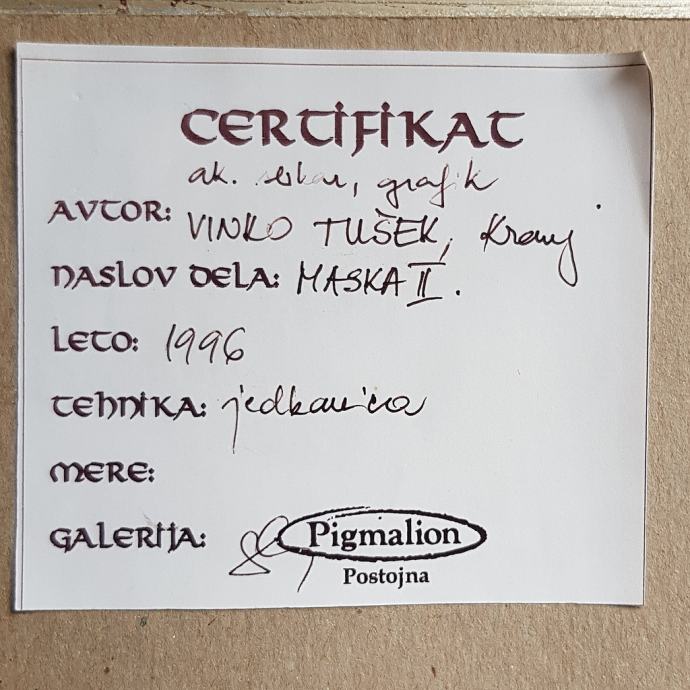 CERTIFIKAT
ak. slikar, grafik
AVTOR: VINKO TUŠEK, Kranj
NASLOV DELA: MASKA II.
LETO: 1996
TEHNIKA: jedkanica
MERE:
GALERIJA: Pigmalion
Postojna